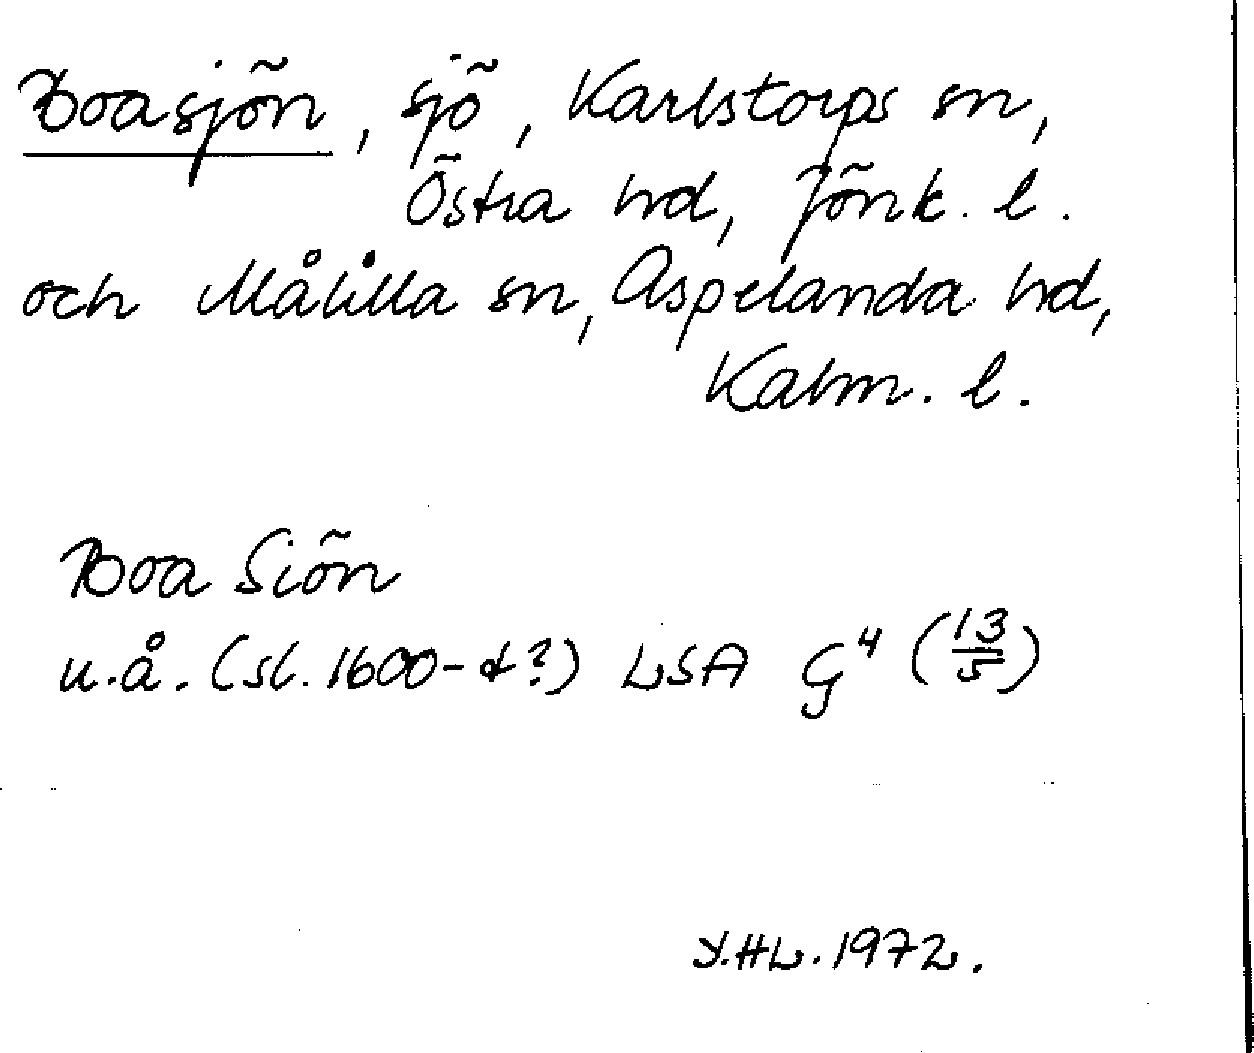 Boasjön, sjö, Karlstorps sn,
Östra hd, Jönk. l.
och Målilla sn, Aspelanda hd,
Kalm. l.
Boa Siön
u.å. (sl. 1600-t?) LSA G⁴ (13/5)
Y.HL. 1972.